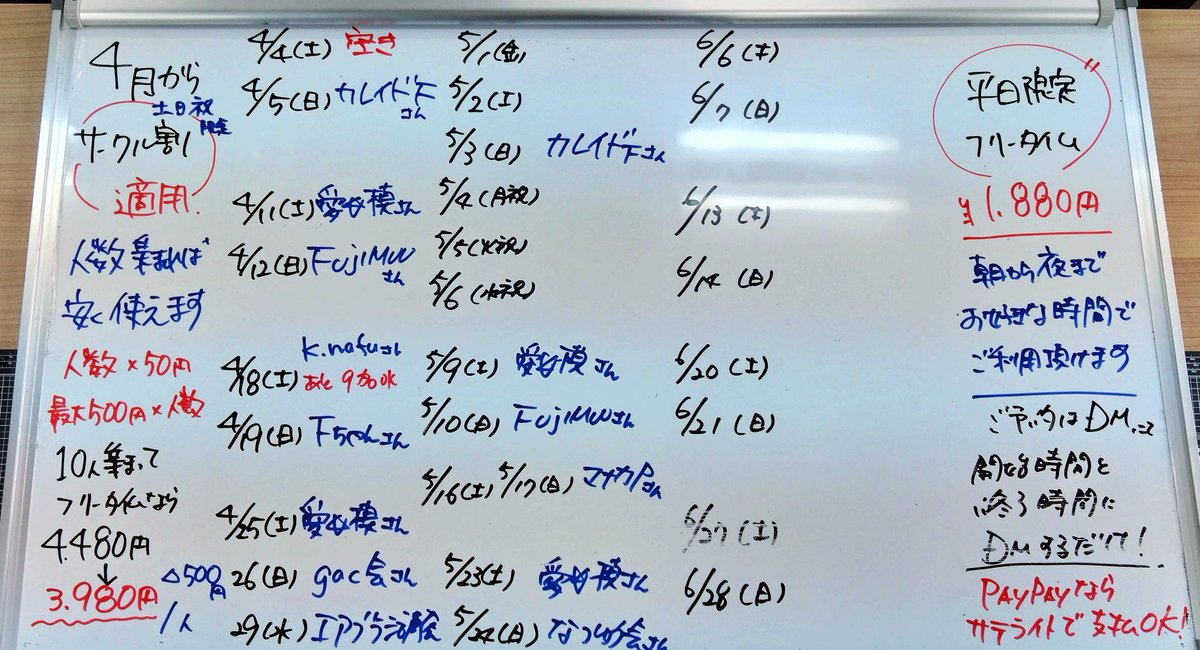 4月から
土日祝
限定
サークル割
適用!
人数集まれば
安く使えます
人数×50円
最大500円×人数
10人集まって
フリータイムなら
4.480円
↓
3.980円
△500円
/1人
4/4(土) 空き
4/5(日) カレイドFさん
4/11(土)
4/12(日) FujiMUUさん
4/18(土) k.nafuさん
あと9カ OK
4/19(日)
4/25(土)
26(日) gac会さん
29(水) エアブラ
5/1(金)
5/2(土)
5/3(日) カレイドFさん
5/4(月祝)
5/5(火祝)
5/6(水祝)
5/9(土)
5/10(日) FujiMUUさん
5/16(土) 5/17(日) マナカPさん
5/23(土)
5/24(日)
6/6(土)
6/7(日)
6/13(土)
6/14(日)
6/20(土)
6/21(日)
6/27(土)
6/28(日)
平日限定
フリータイム
¥1.880円
朝から夜まで
お好きな時間で
ご利用頂けます
ご予約はDMにて
開始時間と
終了時間に
DMするだけ!
PAYPAYなら
サテライトで支払OK!